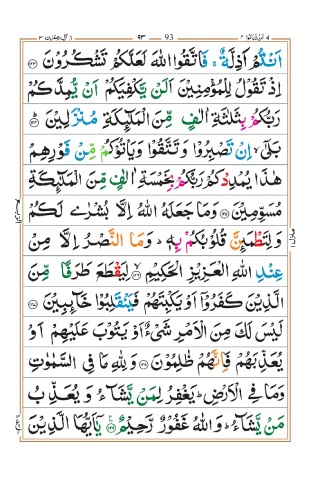 93
اَنْتُمْ اَذِلَّةٌ ۚ فَاتَّقُوا اللّٰهَ لَعَلَّكُمْ تَشْكُرُوْنَ ﴿۱۲۳﴾
اِذْ تَقُوْلُ لِلْمُؤْمِنِيْنَ اَلَنْ يَّكْفِيَكُمْ اَنْ يُّمِدَّكُمْ
رَبُّكُمْ بِثَلٰثَةِ اٰلٰفٍ مِّنَ الْمَلٰٓئِكَةِ مُنْزَلِيْنَ ﴿۱۲۴﴾
بَلٰٓى ۙ اِنْ تَصْبِرُوْا وَتَتَّقُوْا وَيَاْتُوْكُمْ مِّنْ فَوْرِهِمْ
هٰذَا يُمْدِدْكُمْ رَبُّكُمْ بِخَمْسَةِ اٰلٰفٍ مِّنَ الْمَلٰٓئِكَةِ
مُسَوِّمِيْنَ ﴿۱۲۵﴾ وَمَا جَعَلَهُ اللّٰهُ اِلَّا بُشْرٰى لَكُمْ
وَلِتَطْمَئِنَّ قُلُوْبُكُمْ بِهٖ ؕ وَمَا النَّصْرُ اِلَّا مِنْ
عِنْدِ اللّٰهِ الْعَزِيْزِ الْحَكِيْمِ ﴿۱۲۶﴾ لِيَقْطَعَ طَرَفًا مِّنَ
الَّذِيْنَ كَفَرُوْٓا اَوْ يَكْبِتَهُمْ فَيَنْقَلِبُوْا خَآئِبِيْنَ ﴿۱۲۷﴾
لَيْسَ لَكَ مِنَ الْاَمْرِ شَيْءٌ اَوْ يَتُوْبَ عَلَيْهِمْ اَوْ
يُعَذِّبَهُمْ فَاِنَّهُمْ ظٰلِمُوْنَ ﴿۱۲۸﴾ وَلِلّٰهِ مَا فِي السَّمٰوٰتِ
وَمَا فِي الْاَرْضِ ؕ يَغْفِرُ لِمَنْ يَّشَآءُ وَ يُعَذِّبُ
مَنْ يَّشَآءُ ؕ وَاللّٰهُ غَفُوْرٌ رَّحِيْمٌ ﴿۱۲۹﴾ يٰٓاَيُّهَا الَّذِيْنَ